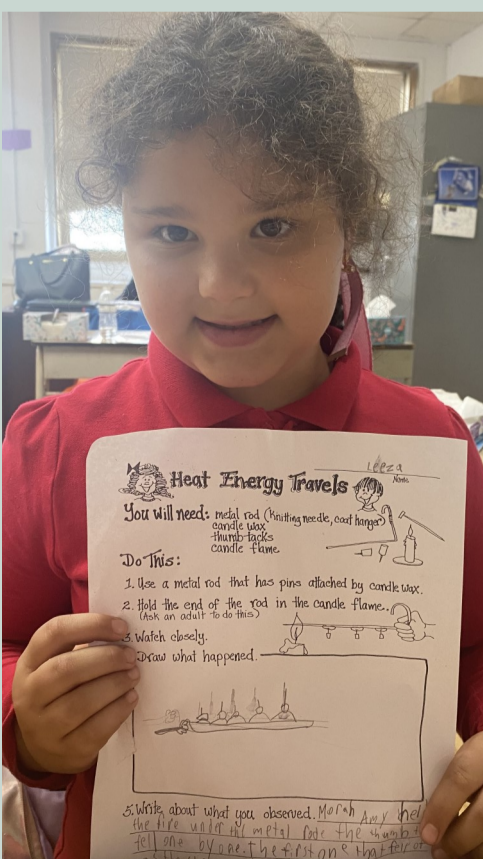 Leeza
Name
Heat Energy Travels
You will need: metal rod (knitting needle, coat hanger)
candle wax
thumb-tacks
candle flame
Do This:
1. Use a metal rod that has pins attached by candle wax.
2. Hold the end of the rod in the candle flame.
(Ask an adult to do this)
3. Watch closely.
Draw what happened.
5. Write about what you observed. Morah Amy hel
the fire under the metal rode the thumb t
fell one by one. the first one that fell of